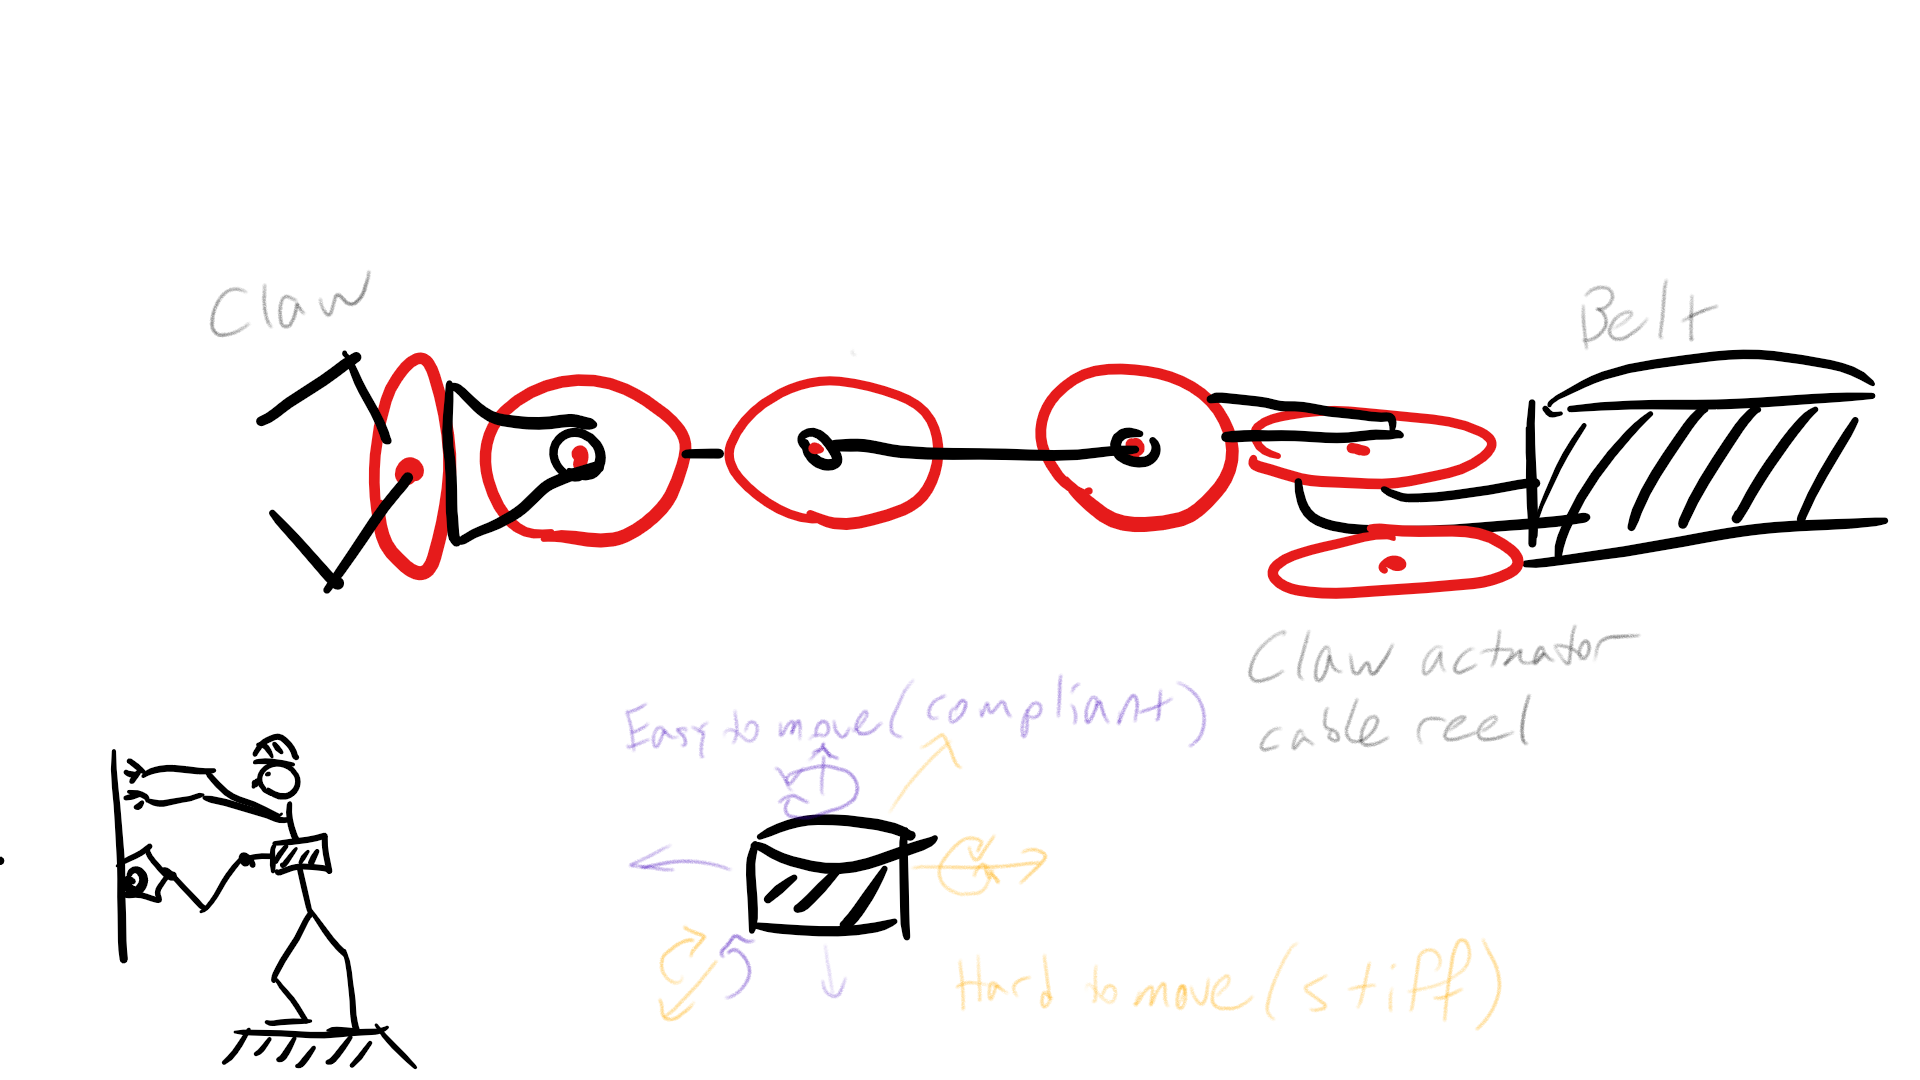 Claw
Belt
Claw actuator
cable reel
Easy to move (compliant)
Hard to move (stiff)